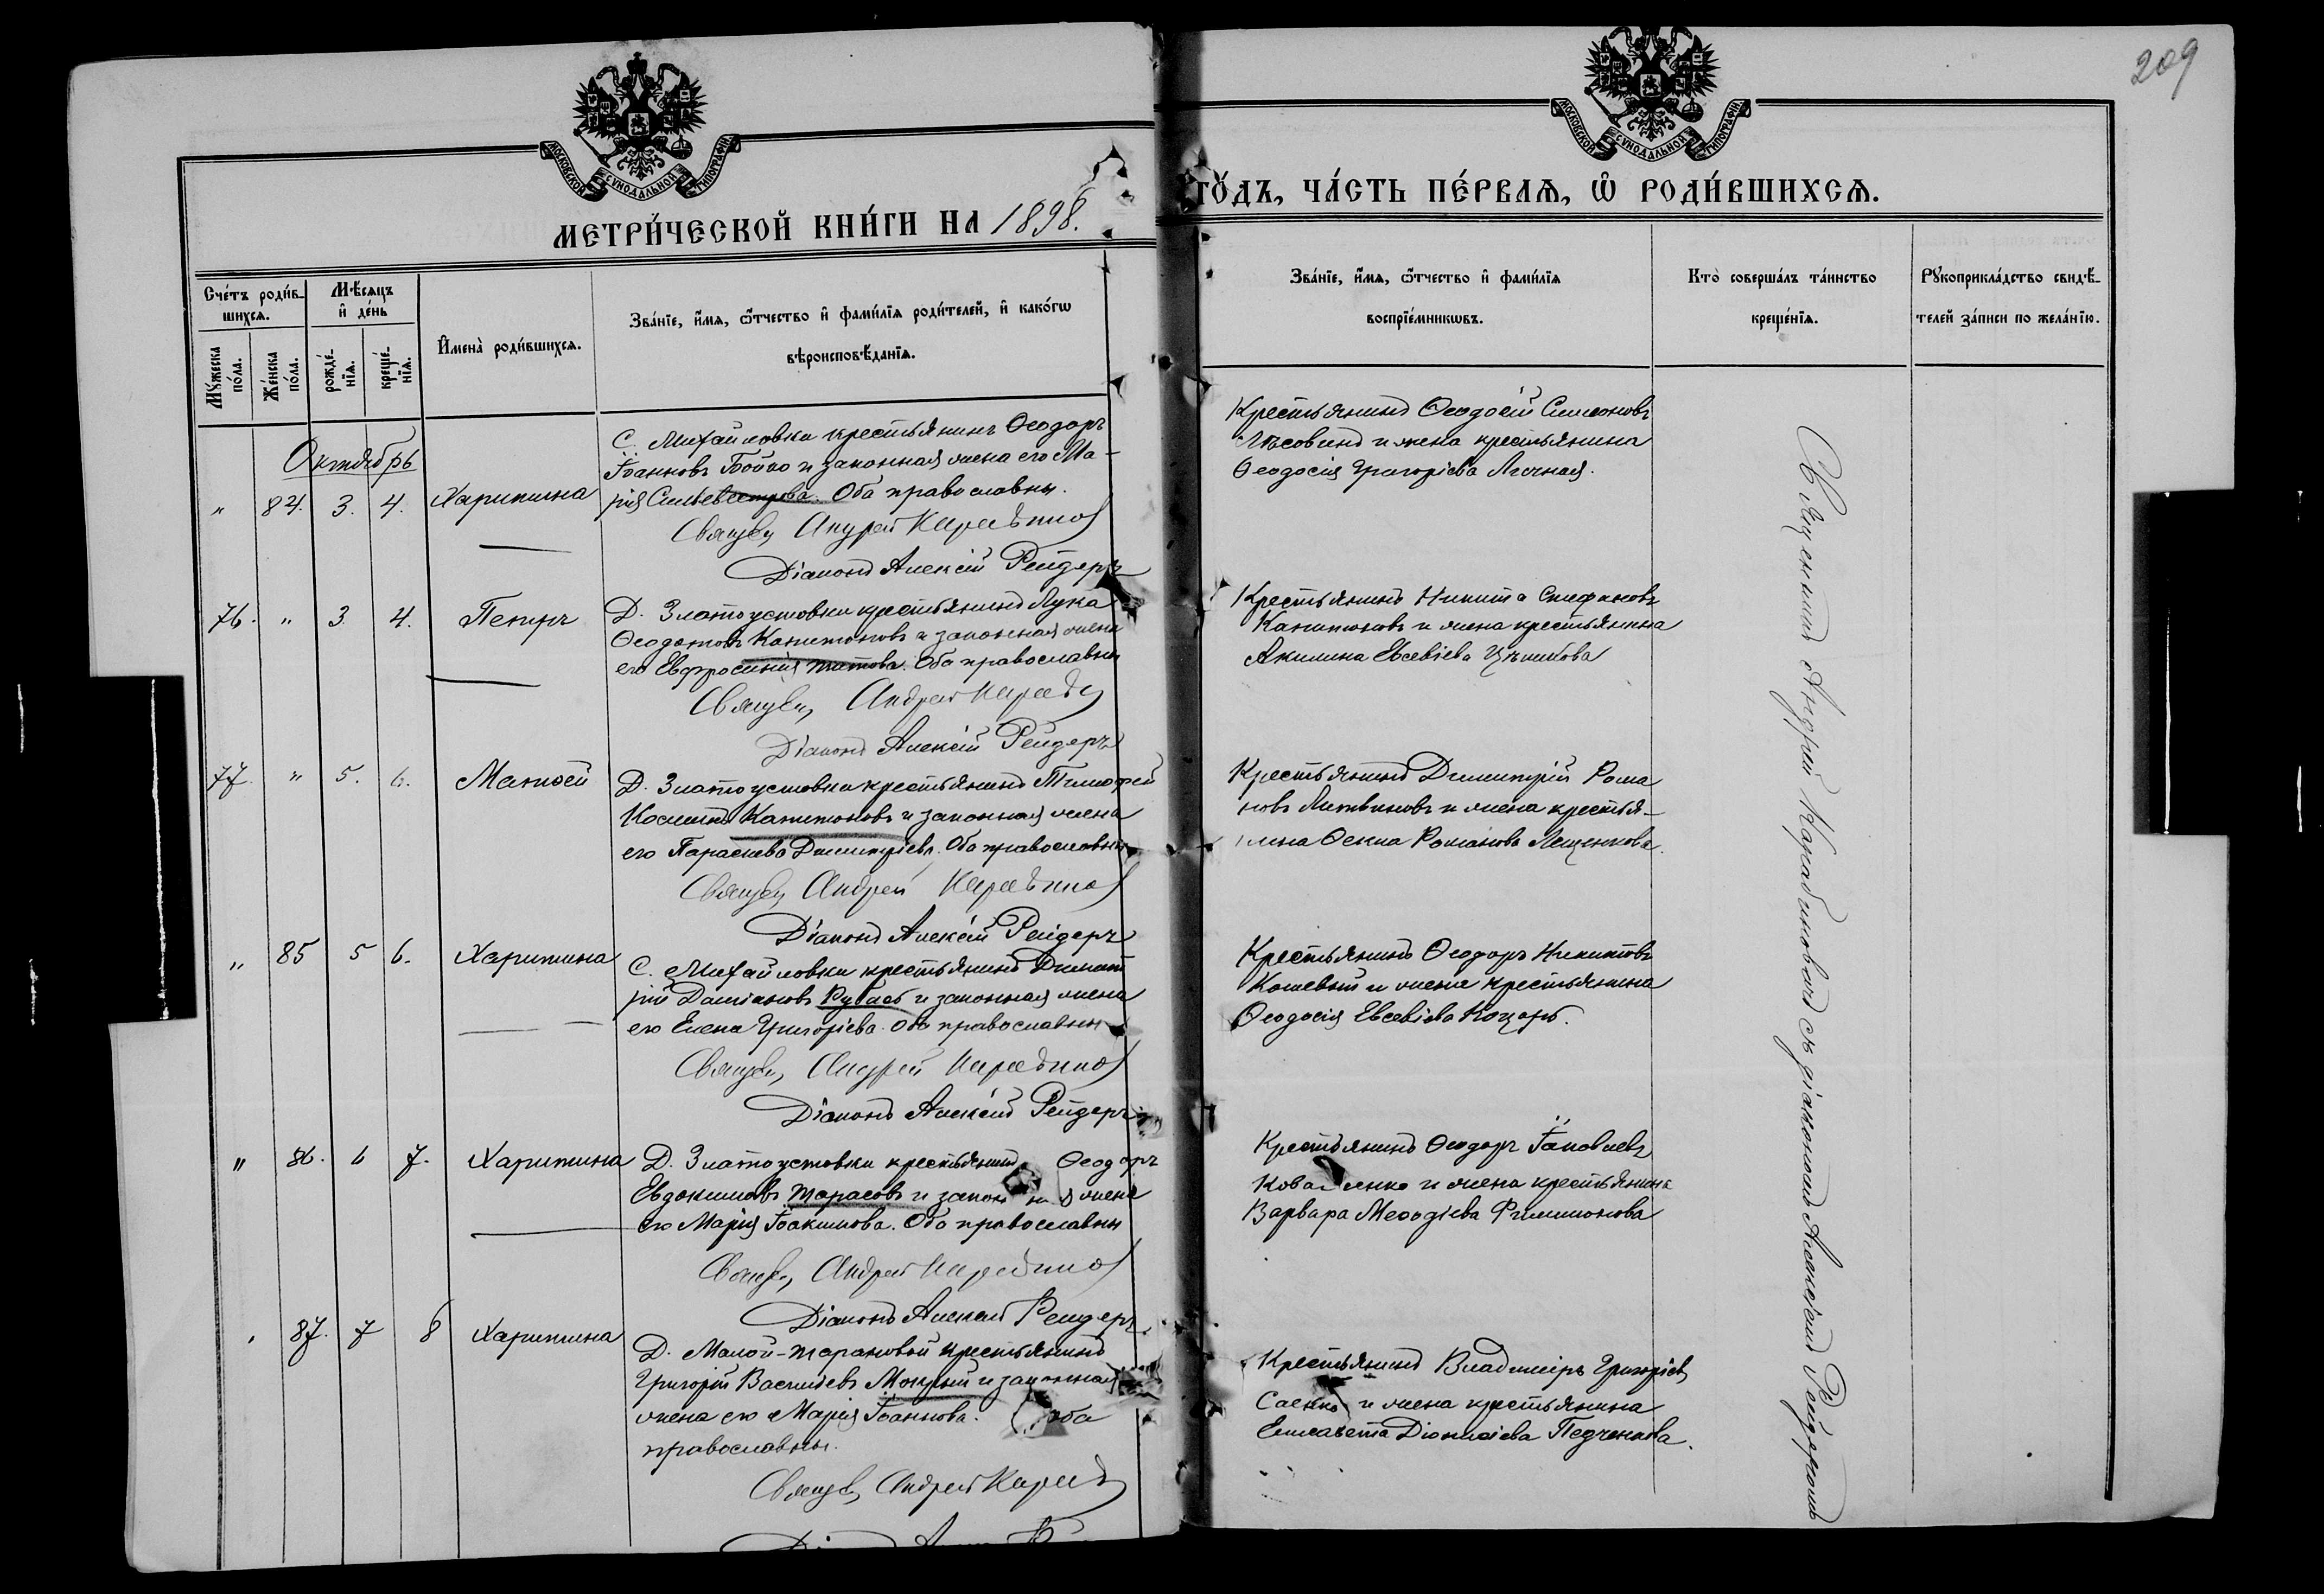 209
МОСКОВСКОЙ СУНОДАЛЬНОЙ ТИПОГРАФІИ
МОСКОВСКОЙ СУНОДАЛЬНОЙ ТИПОГРАФІИ
МЕТРИ́ЧЕСКОЙ КНИ́ГИ НА 1898.
ГО́ДЪ, ЧА́СТЬ ПЕ́РВАѦ, Ѽ РОДИ́ВШИХСѦ.
Сче́тъ роди́в-
шихсѧ.
Мѣ́сяцъ
и҆ де́нь
Мꙋ́жеска
по́ла.
Же́нска
по́ла.
рожде́-
нїѧ.
креще́-
нїѧ.
И҆мена̀ роди́вшихсѧ.
Зва́нїе, и҆́мѧ, ѻ҆́тчество и҆ фами́лїѧ роди́телей, и҆ како́гѡ
вѣроисповѣ́данїѧ.
Зва́нїе, и҆́мѧ, ѻ҆́тчество и҆ фами́лїѧ
воспрїе́мникѡвъ.
Кто̀ соверша́лъ та́инство
креще́нїѧ.
Рꙋкоприкла́дство свидѣ́-
телей за́писи по жела́нїю.
Октябрь
" 84. 3. 4. Харитина
С. Михайловки крестьянинъ Ѳеодоръ
Іоанновъ Бойко и законная жена его Ма-
рія Сильвестрова. Оба православны.
Священ Андрей Карабинов
Діаконъ Алексій Рейдеръ
Крестьянинъ Ѳеодосій Симеоновъ
и жена крестьянина
Ѳеодосія Григоріева
76. " 3 4. Петръ
Д. Златоустовки крестьянинъ Лука
Ѳеодотовъ Капитоновъ и законная жена
его Евфросинія Титова. Оба православны
Священ Андрей Караб
Діаконъ Алексій Рейдеръ
Крестьянинъ Никита Стефановъ
Капитоновъ и жена крестьянина
Акилина Евсевіева
77. " 5. 6. Матѳей
Д. Златоустовки крестьянинъ Тимофей
Косминъ Капитоновъ и законная жена
его Параскева Димитріева. Оба православны
Священ Андрей Карабинов
Діаконъ Алексій Рейдеръ
Крестьянинъ Димитрій Рома
новъ Литвиновъ и жена крестья-
нина Ѳекла Романова Лещенкова.
" 85 5 6. Харитина
С. Михайловки крестьянинъ Димит
рій Даміановъ и законная жена
его Елена Григоріева. Оба православны
Священ Андрей Карабинов
Діаконъ Алексій Рейдеръ
Крестьянинъ Ѳеодоръ Никитовъ
Кошевый и жена крестьянина
Ѳеодосія Евсевіева Коцарь.
" 86. 6 7. Харитина
Д. Златоустовки крестьянинъ Ѳеодоръ
Евдокимовъ Тарасовъ и законная жена
его Марія Іоакимова. Оба православны
Священ Андрей Карабинов
Діаконъ Алексій Рейдеръ
Крестьянинъ Ѳеодоръ Іаковлевъ
Коваленко и жена крестьянина
Варвара Меѳодіева Филимонова
87. 7 8 Харитина
Д. Малой-Тарановой крестьянинъ
Григорій Васильевъ Мокрый и законная
жена его Марія Іоаннова. Оба
православны.
Священ Андрей Караб
Крестьянинъ Владиміръ Григоріев
Саенко и жена крестьянина
Елисавета Діонисіева Педченкова.
Священникъ Андрей Карабиновичъ съ діакономъ Алексіемъ Рейдеромъ